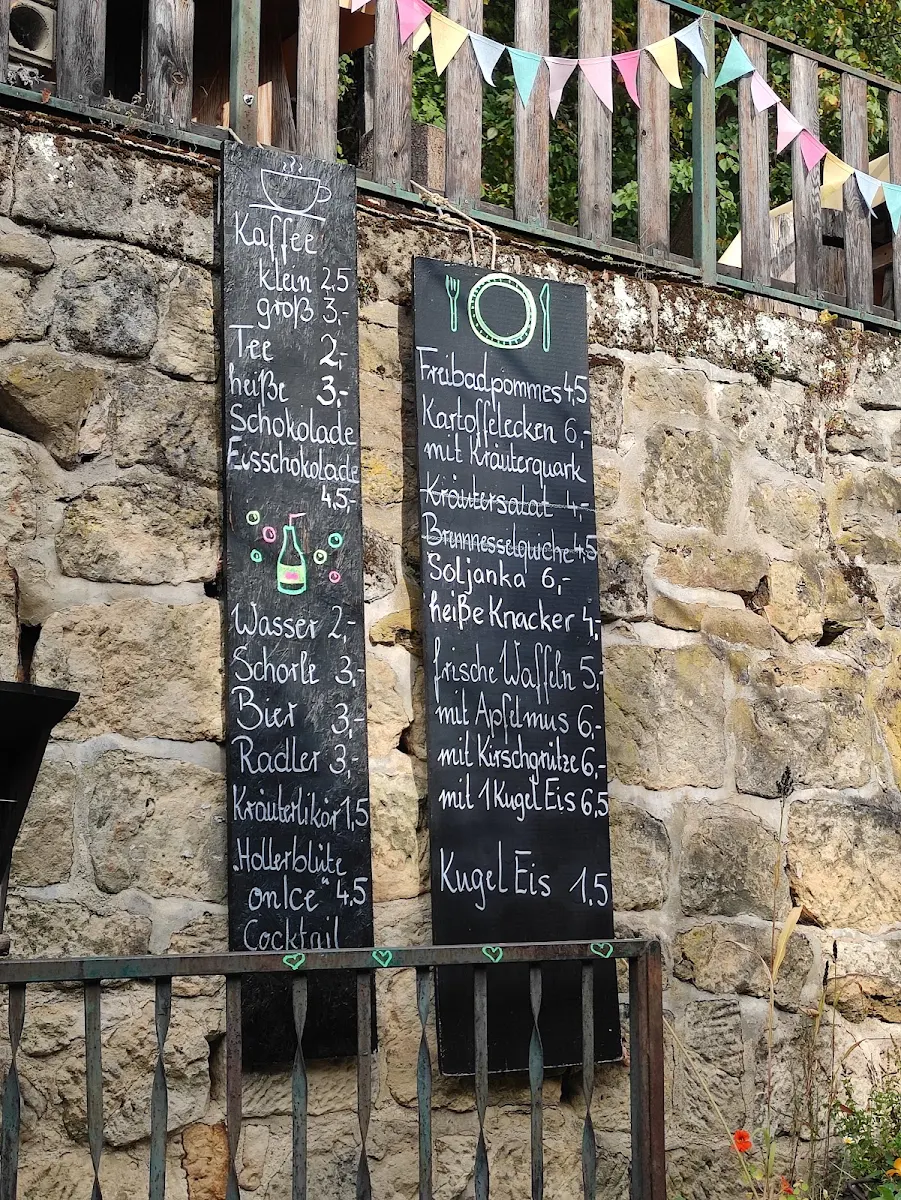 Kaffee
klein 2,5
groß 3,-
Tee 2,-
heiße 3,-
Schokolade
Eisschokolade
4,5,-
Wasser 2,-
Schorle 3,-
Bier 3,-
Radler 3,-
Kräuterlikör 1,5
„Hollerblüte
on Ice" 4,5
Cocktail
Freibadpommes 4,5
Kartoffelecken 6,-
mit Kräuterquark
Kräutersalat 4,-
Brennesselquiche 4,5
Soljanka 6,-
heiße Knacker 4,-
frische Waffeln 5,-
mit Apfelmus 6,-
mit Kirschgrütze 6,-
mit 1 Kugel Eis 6,5
Kugel Eis 1,5